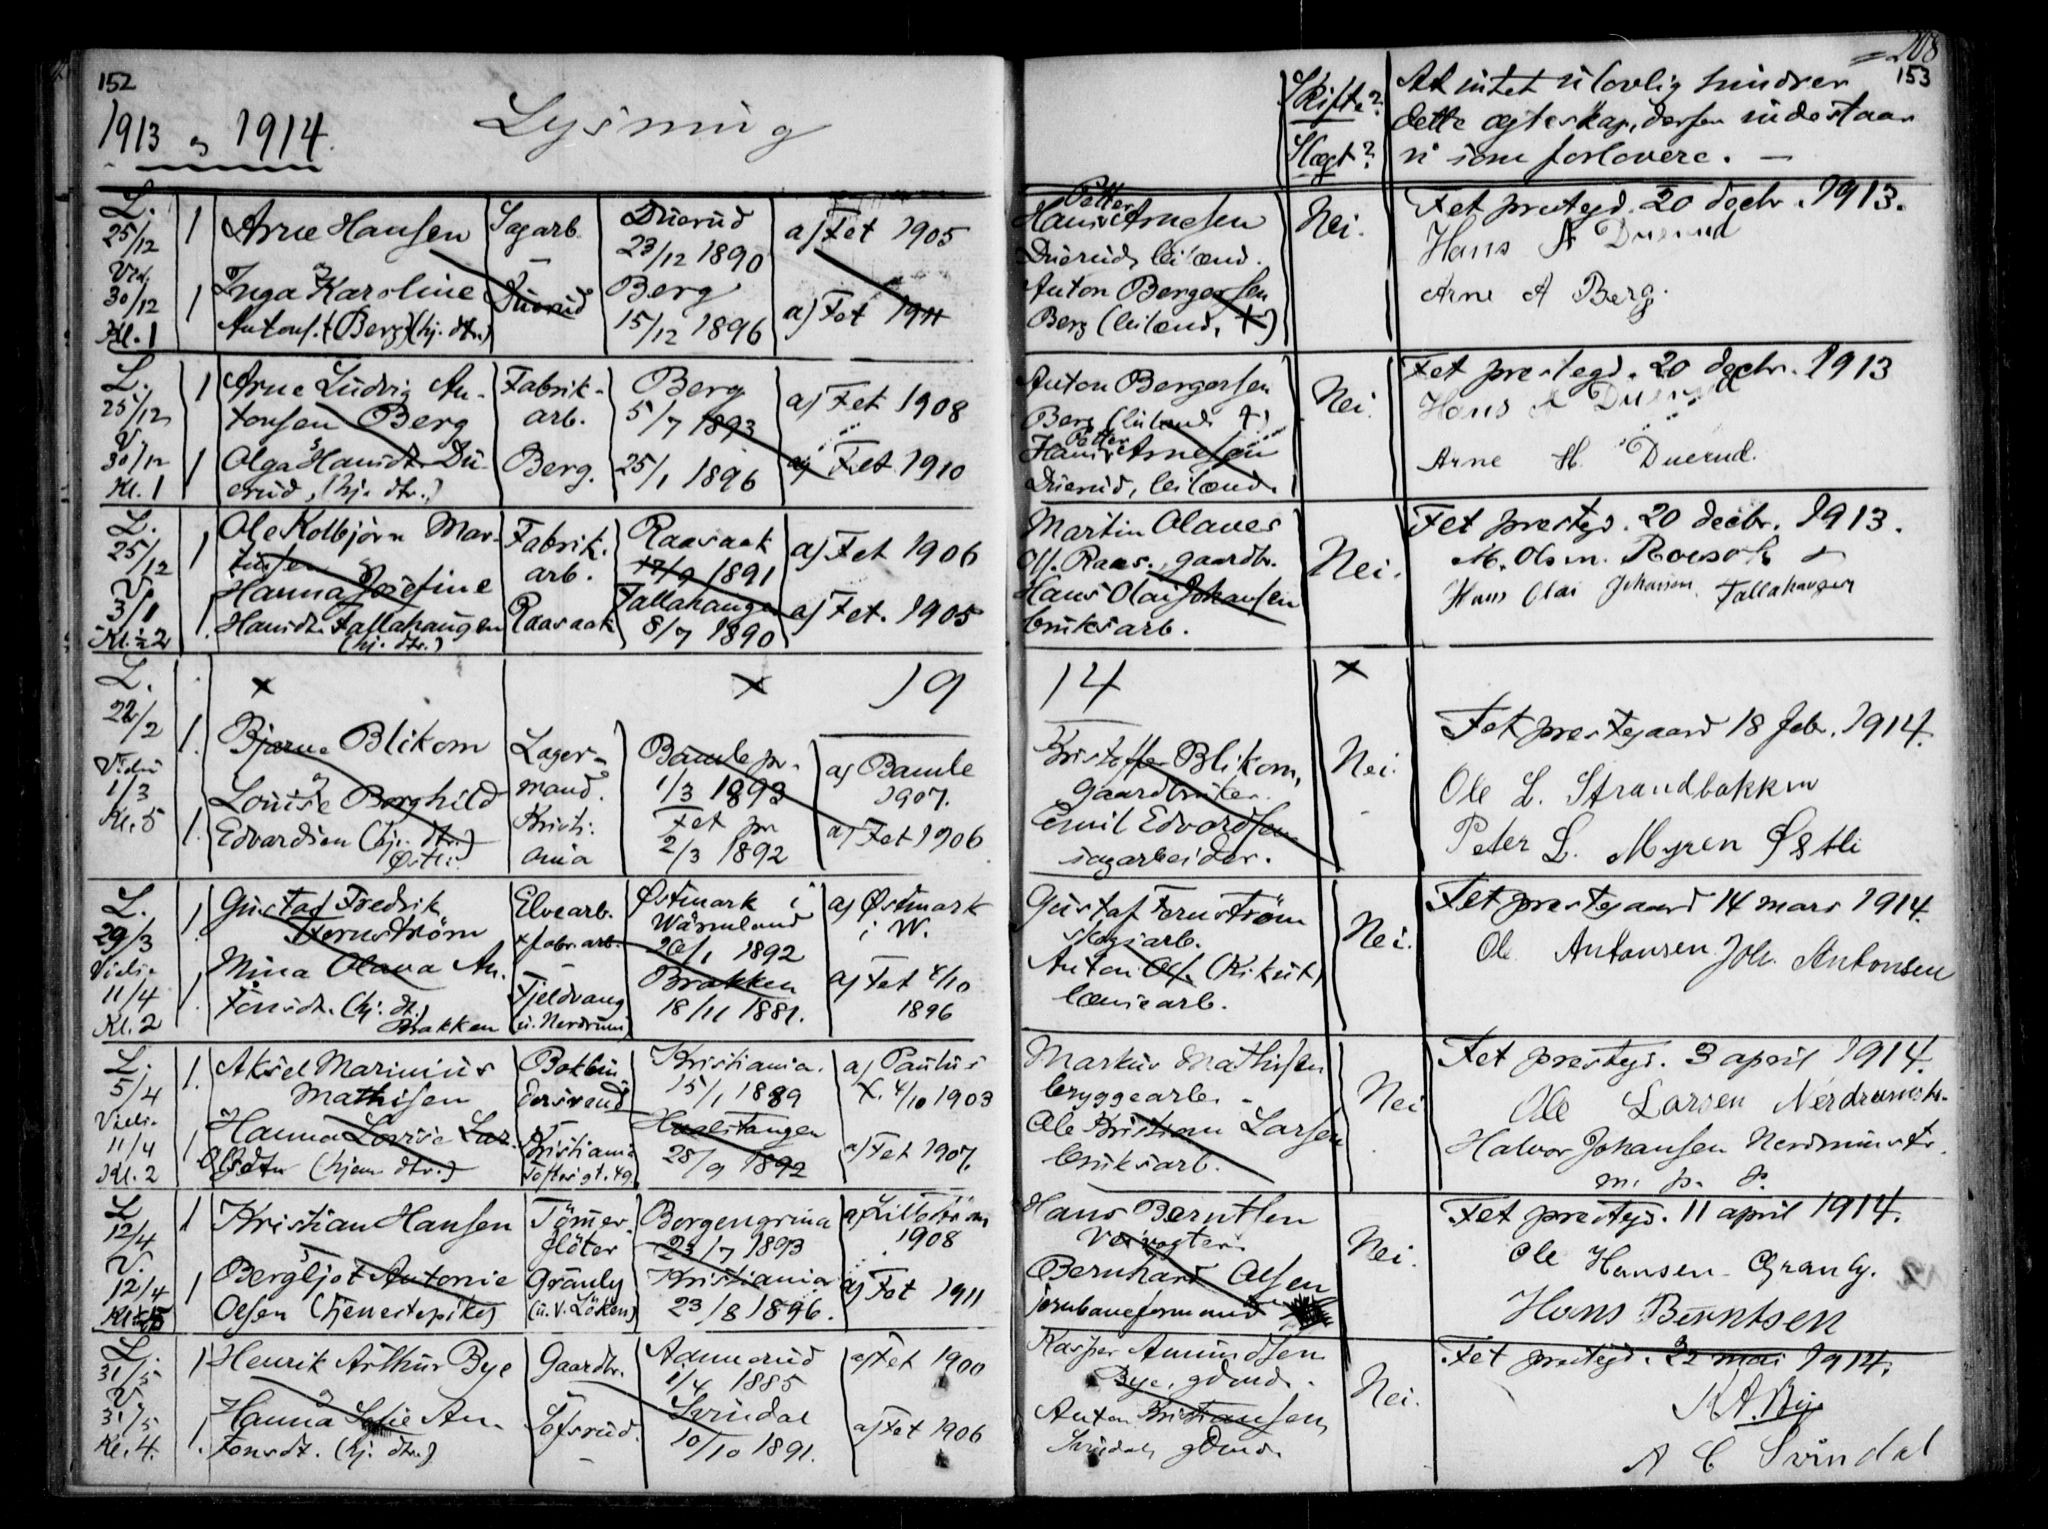 152
1913 og 1914.
Lysning
L. 25/12 1 Arne Hansen Sagarb. Duerud 23/12 1890 a) Fet 1905
Vid. 30/12 Kl. 1
1 Inga Karoline Duerud Berg a) Fet 1911
Antons. (Berg) (hj. dtr.) 15/12 1896
L. 25/12 1 Arne Ludvig An- Fabrik- Berg a) Fet 1908
tonsen Berg arb. 5/7 1893
V. 30/12 1 Olga Hansdtr. Du- Berg. 25/1 1896 a) Fet 1910
Kl. 1 erud, (hj. dtr.)
L. 25/12 1 Ole Kolbjörn Mar- Fabrik. Raasaak a) Fet 1906
tinsen arb. 17/9 1891
V. 3/1 1. Hanna Josefine Raasaak Fallahaugen a) Fet. 1905
Kl. ½2 Hansdtr. Fallahaugen 8/7 1890
(hj. dtr.)
L. x x 19
22/2 1. Bjarne Blikom Lager- Bamble pr. a) Bamle
mand. 1/3 1893 1907.
Vidi 1/3 Louise Borghild Kristi- Fet pr
Kl. 5 1. Edvardsen (hj. dtr.) ania 2/3 1892 a) Fet 1906
Østli
L. 29/3 1. Gustaf Fredrik Elvearb. Østmark i a) Østmark
Fernström + fabr. arb. Wärmland i W.
20/1 1892
11/4 1. Mina Olava An- Fjeldvang Brakken a) Fet 4/10
Kl. 2 tonsdt. (hj. dt.) (u. Nerdrum) 18/11 1881. 1896
Brakken
L. 5/4 1. Aksel Marinius Bokbin- Kristiania. a) Paulus
Mathisen dersvend 15/1 1889 K. 4/10 1903
11/4 1 Hanna Lovise Lar- Kristiania a) Fet 1907.
Kl. 2 Olsdtr (hjem. dtr.) Toftesgt. 49. 28/9 1892
L. 12/4 1 Kristian Hansen Tömer- Borgengrina a) Lilleström
flöter 23/7 1893 1908
V. 12/4 1 Bergljot Antonie Granly Kristiania a) Fet 1911
Olsen (tjenestepike) (u. V. Löken) 23/8 1896.
L. 31/5 1 Henrik Arthur Bye Gaardbr. 1/4 1885 a) Fet 1900
V. 31/5 1. Hanna Sofie An- Svindal a) Fet 1906
Kl. 4. tonsdt. (hj. dtr.) 10/10 1891.
208
153
Skifte? At intet ulovlig hindrer
dette ægteskap, derfor indestaar
Slegt? vi som forlovere. —
Petter
Hans Arnesen Nei. Fet prestegd. 20 decbr. 1913.
Duerud, leilænd. Hans A Duerud
Anton Bergersen Arne A Berg.
Berg (leilænd. †)
Anton Bergersen Nei. Fet prestegd. 20 decbr. 1913
Berg (leilænd. †) Hans A Duerud
Petter
Hans Arnesen Arne H. Duerud.
Duerud, leilænd.
Martin Olaves Nei. Fet prestgd. 20 decbr. 1913.
Ols. Raas., gaardbr. M. Olsen. Roesok
Hans Olai Johansen Hans Olai Johansen Fallahaugen
bruksarb.
14 x
Fet prestegaard 18 febr. 1914.
Kristoffer Blikom, Nei. Ole L. Strandbakken
gaardbruker.
Emil Edvardsen Peter L. Myren Østli
sagarbeider.
Gustaf Fernström Nei. Fet prestegaard 14 mars 1914.
skogsarb. Ole Antonsen Joh. Antonsen
Anton Ols. (Kikut)
lænsearb.
Markus Mathisen Nei Fet prestegd. 3 april 1914.
bryggearb. Ole Larsen
Ole Kristian Larsen Halvor Johansen
bruksarb. m. p. P.
Hans Berntsen Nei. Fet prestegd. 11 april 1914.
Ole Hansen Granly.
Bernhard Olsen Hans Berntsen
jernbaneformand
Kasper Amundsen Nei. Fet prestegd. 22 mai 1914.
Bye, gdmd. K A. Bye
Anton Kristiansen A C Svindal
Svindal, gdmd.